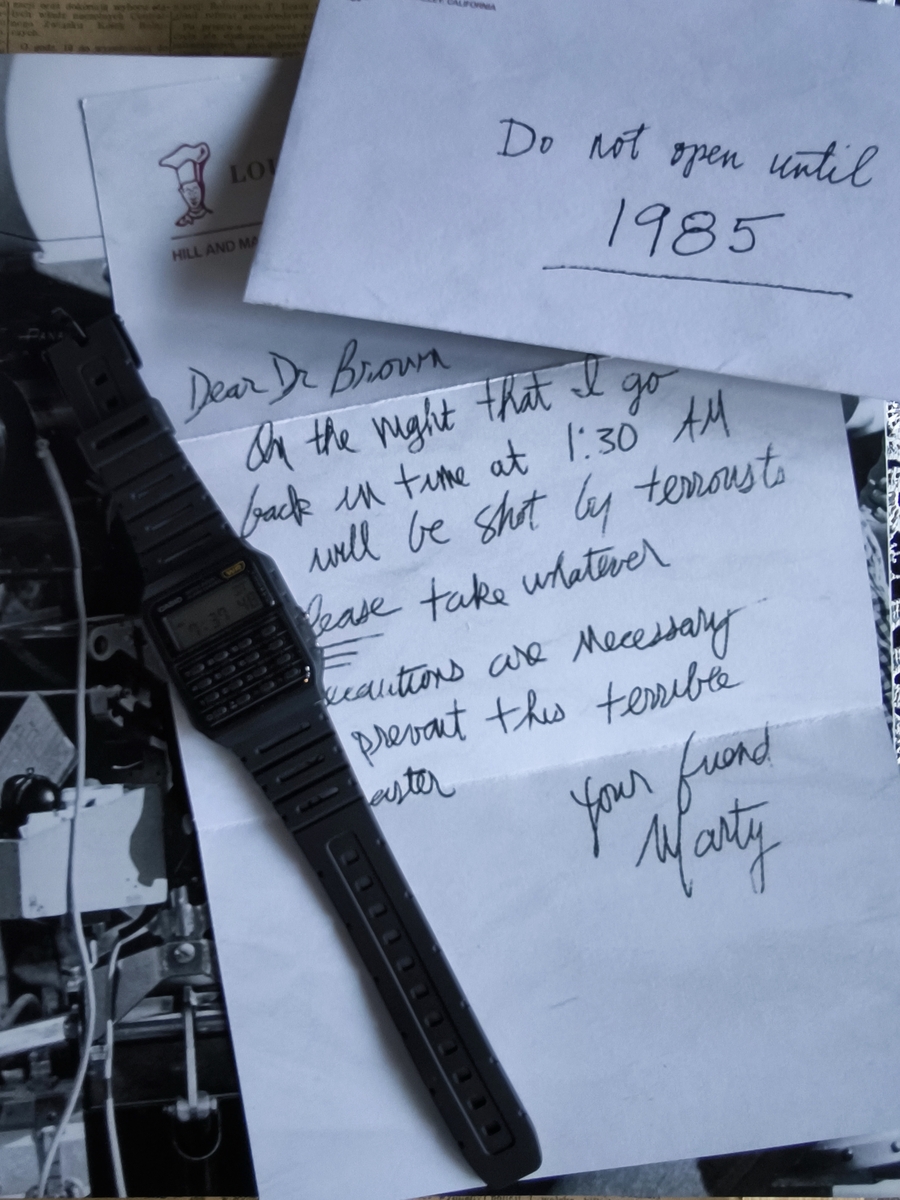 VALLEY, CALIFORNIA
Do not open until
1985
LOU
HILL AND MA
Dear Dr Brown
On the night that I go
back in time at 1:30 AM
will be shot by terrorists
lease take whatever
ecautions are necessary
prevent this terrible
aster
Your friend
Marty
CASIO